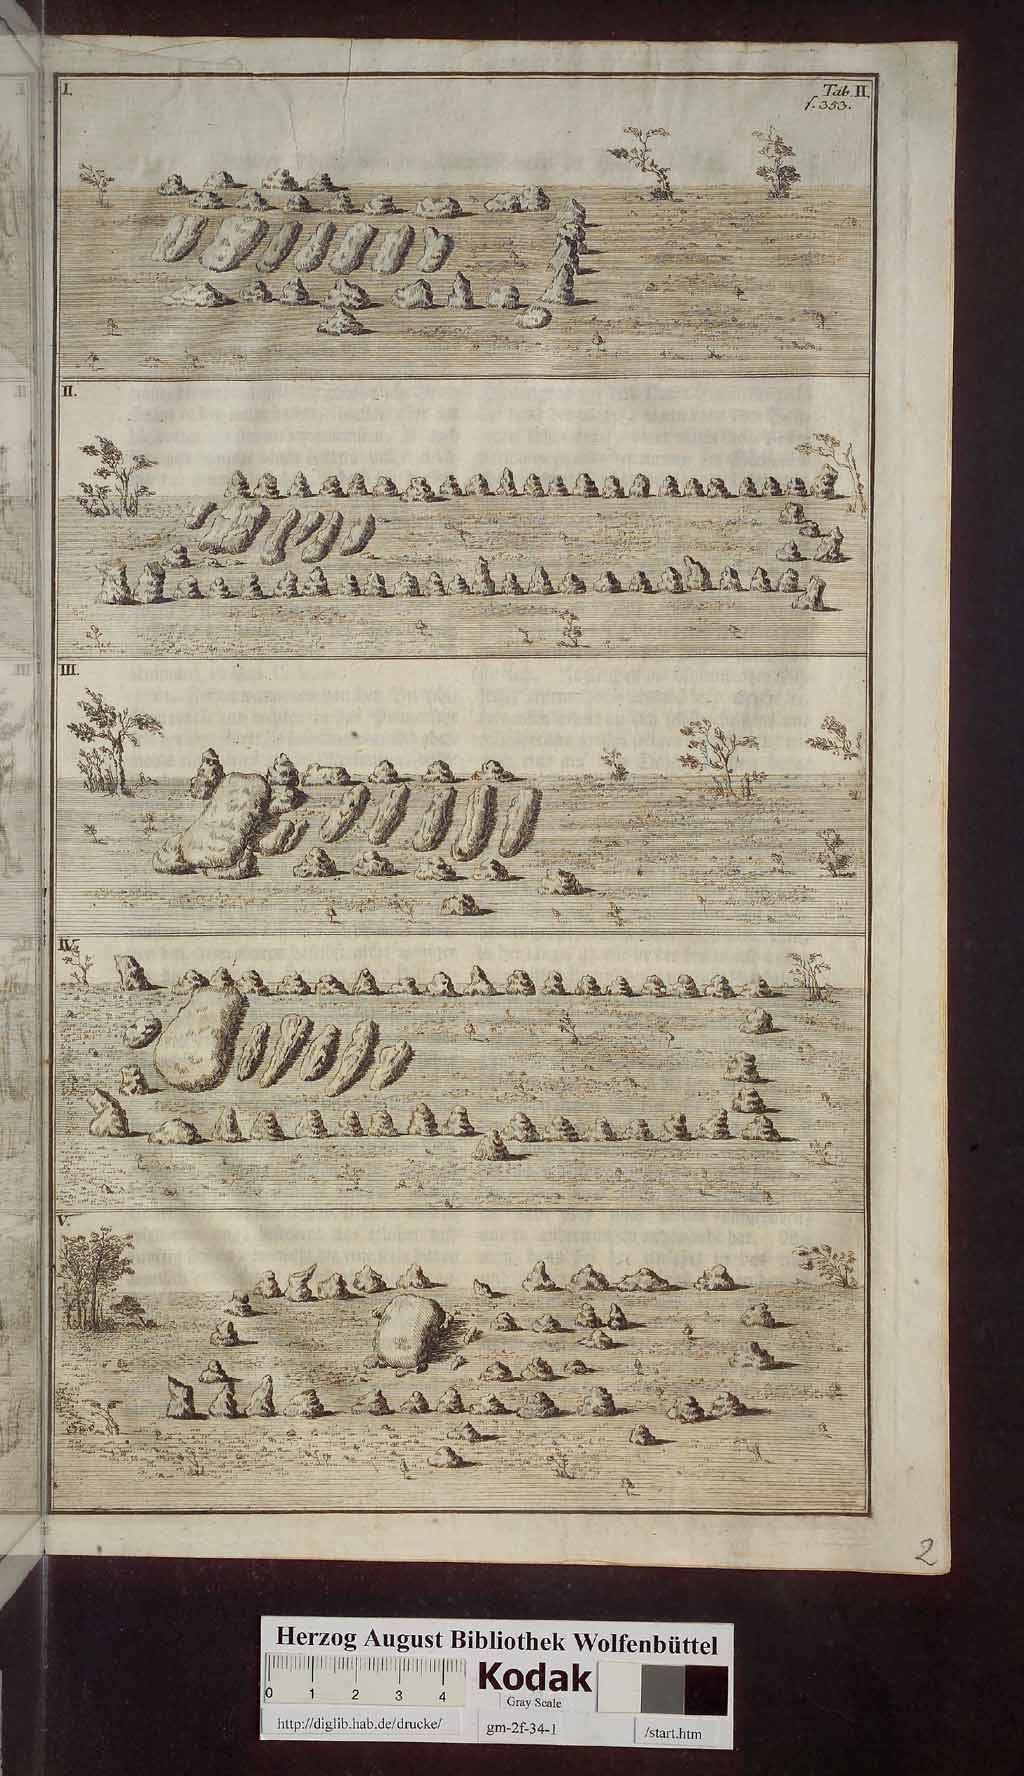 I.
Tab. II.
f. 353.
II.
III.
IV.
V.
2
Herzog August Bibliothek Wolfenbüttel
Kodak
0 1 2 3 4
Gray Scale
http://diglib.hab.de/drucke/
gm-2f-34-1
/start.htm